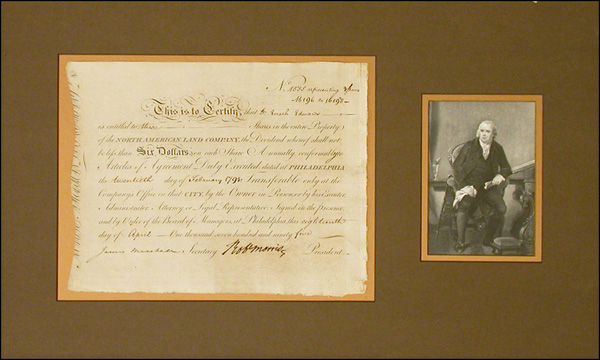 This is to Certify, that
is entitled to Three Shares in the entire Property
of the NORTH AMERICAN LAND COMPANY, the Dividend whereof shall not
be less than Six Dollars, on each Share Annually, conformably to
Articles of Agreement Duly Executed, dated at PHILADELPHIA
the twentieth day of February 1795 Transferable only at the
Company's Office in that CITY, by the Owner in Person or by his Executor
Administrator Attorney or Legal Representative Signed in the presence
and by Order of the Board of Managers, at Philadelphia, this eighteenth
day of April One thousand seven hundred and ninety five
James Marshall Secretary Rob Morris President